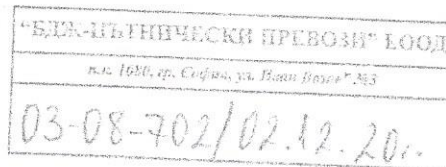 "БДЖ-ПЪТНИЧЕСКИ ПРЕВОЗИ" ЕООД
п.к. 1080, гр. София, ул. Иван Вазов №3
03-08-702/02.12.20..